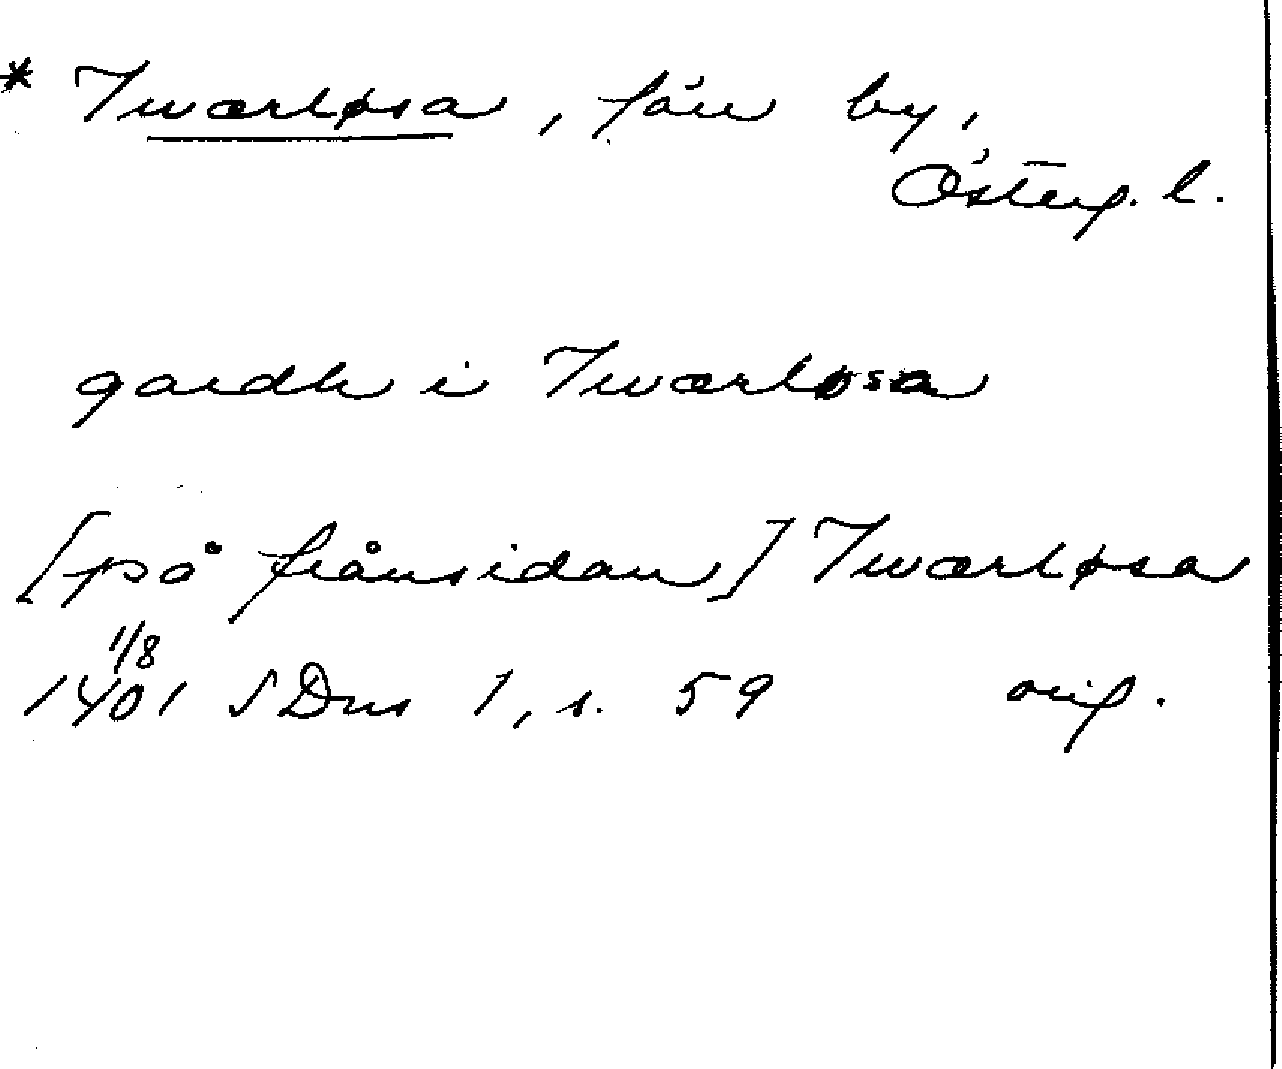 * Twærløsa, förs. by,
Österg. l.
gardh i Twærløsa
[på frånsidan] Twærløsa
1/8
1401 SDns 1, s. 59 orig.